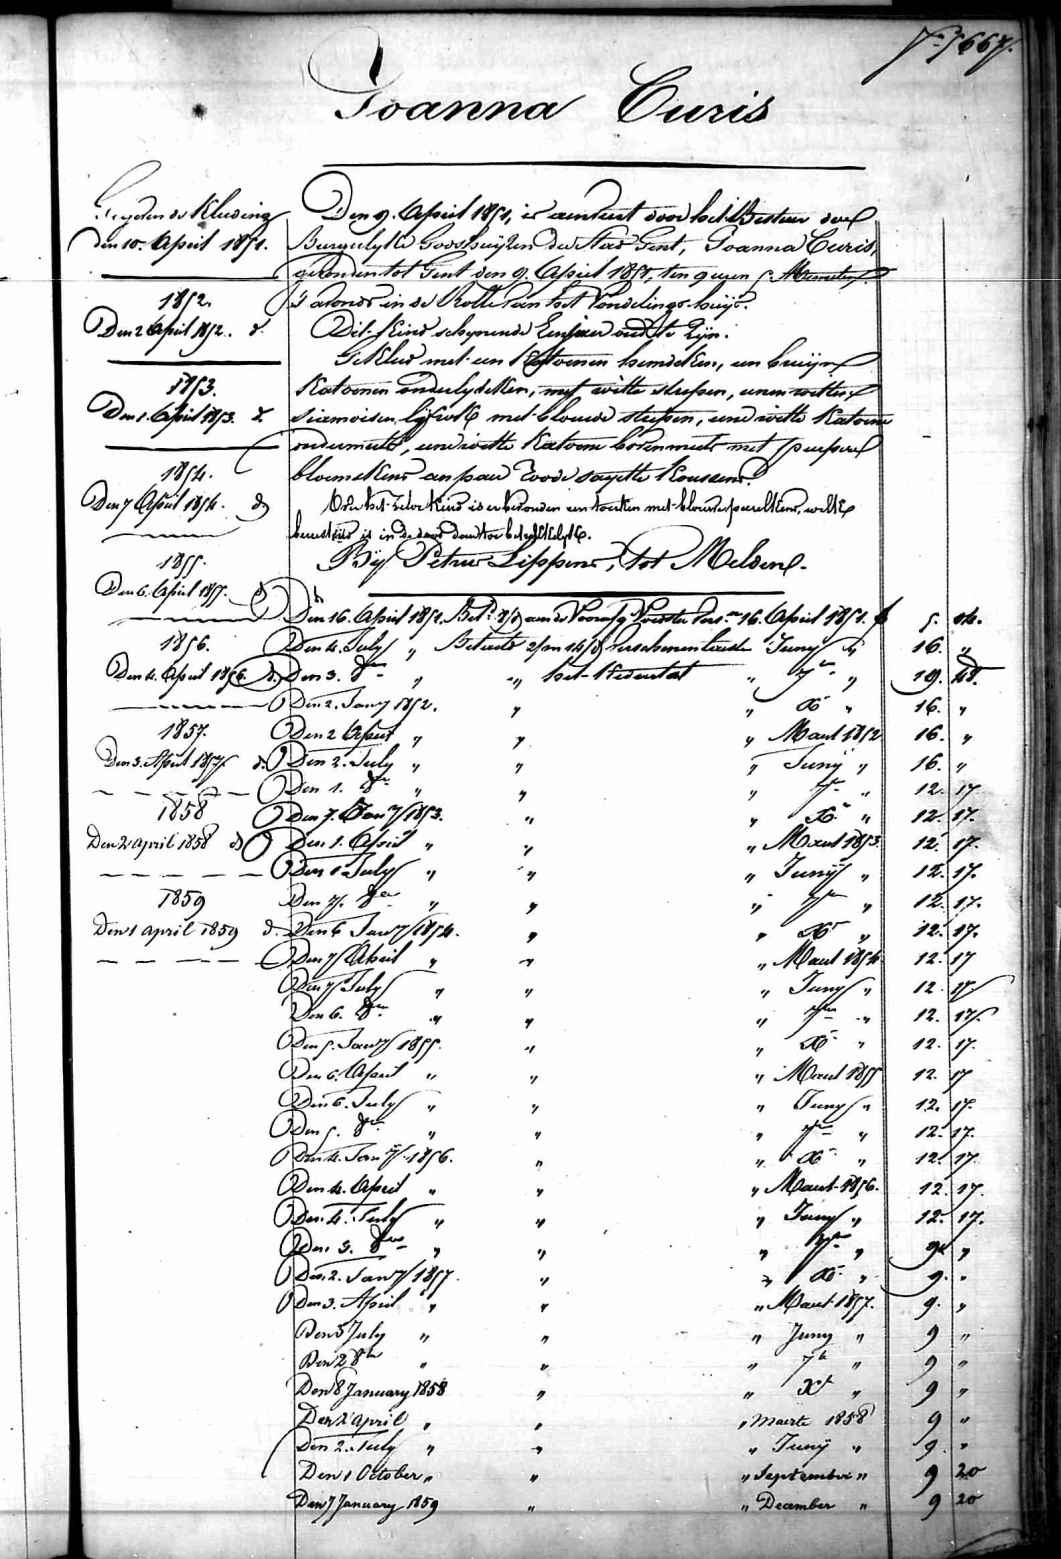 Joanna Curis
Kleding
den 10 April 1851.
1852.
Den 2 April 1852. d.
1853.
Den 1. April 1853. d.
1854.
Den 7 April 1854. d
1855.
Den 6. April 1855. d
1856.
Den 4. April 1856. d.
1857.
Den 3. April 1857. d.
1858
Den 2 April 1858 d
1859
Den 1 April 1859 d.
Den 9. April 1851, is aenveert door het Bestuer der
Burgerlyke Godshuyzen der Stad Gent, Joanna Curis,
gevonden tot Gent den 9. April 1851, ten 9 uren
's avonds in de Rolle van het Vondelings-huys.
Dit kind schynende Een jaer oud te zyn.
Gekleed met een Katoenen hemdeken, een bruyn
Katoenen onderlyfdeken, met witte strepen, eenen witten
siamoisen lyfrok met blauwe strepen, eene witte Katoene
ondermuts, eene witte Katoene bovenmuts met purpere
bloemekens, een paer roode sayette koussens.
Op het zelve kind is er bevonden een met blauwe pereltiens, welke
is in de
By Petrus Lippens, tot Melden.
Den 16. April 1851. Bet. aen de Voorster 16. April 1851. f 5. 04.
Den 4. July " Betaelt verschenen Juny " 16. "
Den 3. 8bre " " het Kwartael " 7bre " 19. 48.
Den 2. Jany 1852. " " Xbr " 16. "
Den 2 April " " " Maert 1852 16. "
Den 2. July " " " Juny " 16. "
Den 1. 8bre " " " 7bre " 12. 17
Den 7. Jany 1853. " " Xbr " 12. 17.
Den 1. April " " " Maert 1853. 12. 17.
Den 1 July " " " Juny " 12. 17.
Den 7. 8bre " " " 7bre " 12. 17.
Den 6 Jany 1854. " " Xbr " 12. 17.
Den 7 April " " " Maert 1854 12. 17
Den 7 July " " " Juny " 12. 17
Den 6. 8bre " " " 7bre " 12. 17.
Den 5. Jany 1855. " " Xbr " 12. 17.
Den 6. April " " " Maert 1855 12. 17
Den 6. July " " " Juny " 12. 17.
Den 5. 8bre " " " 7bre " 12. 17.
Den 4. Jany 1856. " " Xbr " 12. 17.
Den 4. April " " " Maert 1856. 12. 17.
Den 4. July " " " Juny " 12. 17.
Den 3. 8bre " " " 7bre " 9. "
Den 2. Jany 1857. " " Xbr " 9. "
Den 3. April " " " Maert 1857. 9. "
Den 3 July " " " Juny " 9 "
Den 2 8br " " " 7br " 9 "
Den 8 January 1858 " " Xbr " 9 "
Den 2 April " " " Maerte 1858 9 "
Den 2. July " " " Juny " 9. "
Den 1 October " " " September " 9 20
Den 7 January 1859 " " December " 9 20